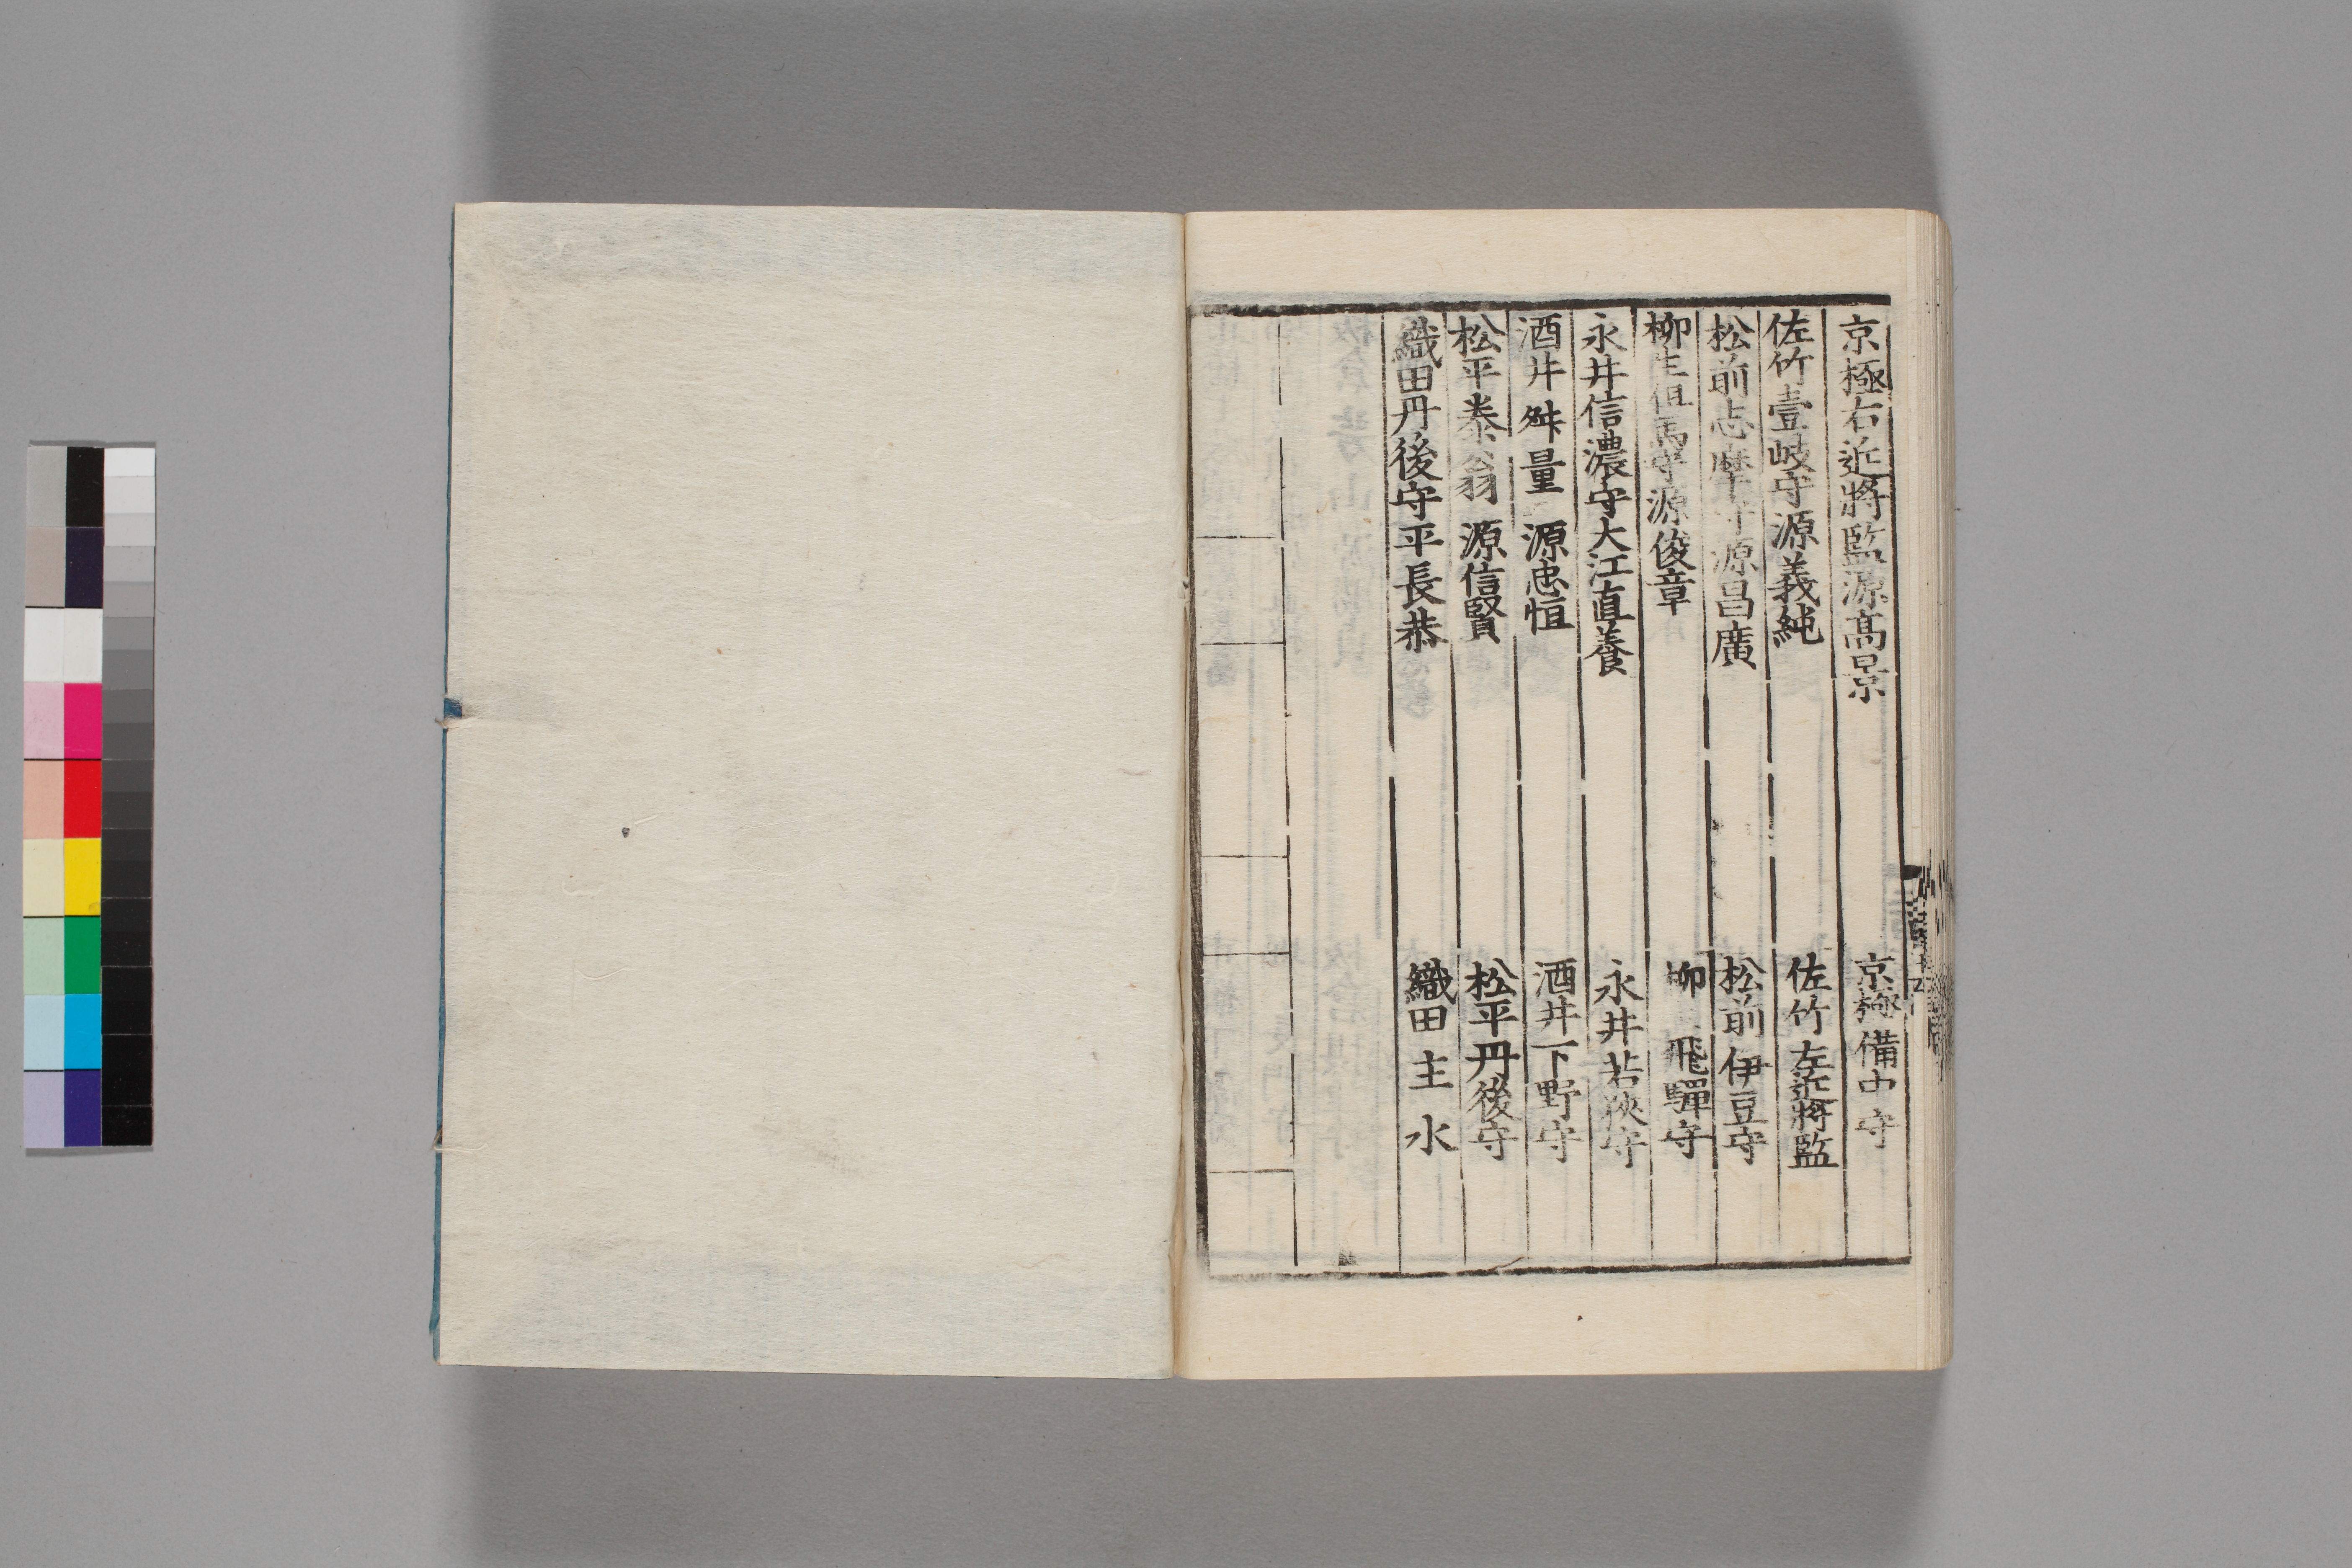 京極右近將監源高景
京極備中守
佐竹壹岐守源義純
佐竹左近將監
松前志摩守源昌廣
松前伊豆守
柳生但馬守源俊章
柳 飛驒守
永井信濃守大江直養
永井若狹守
酒井舛量 源忠恒
酒井下野守
松平泰翁 源信賢
松平丹後守
織田丹後守平長恭
織田主水